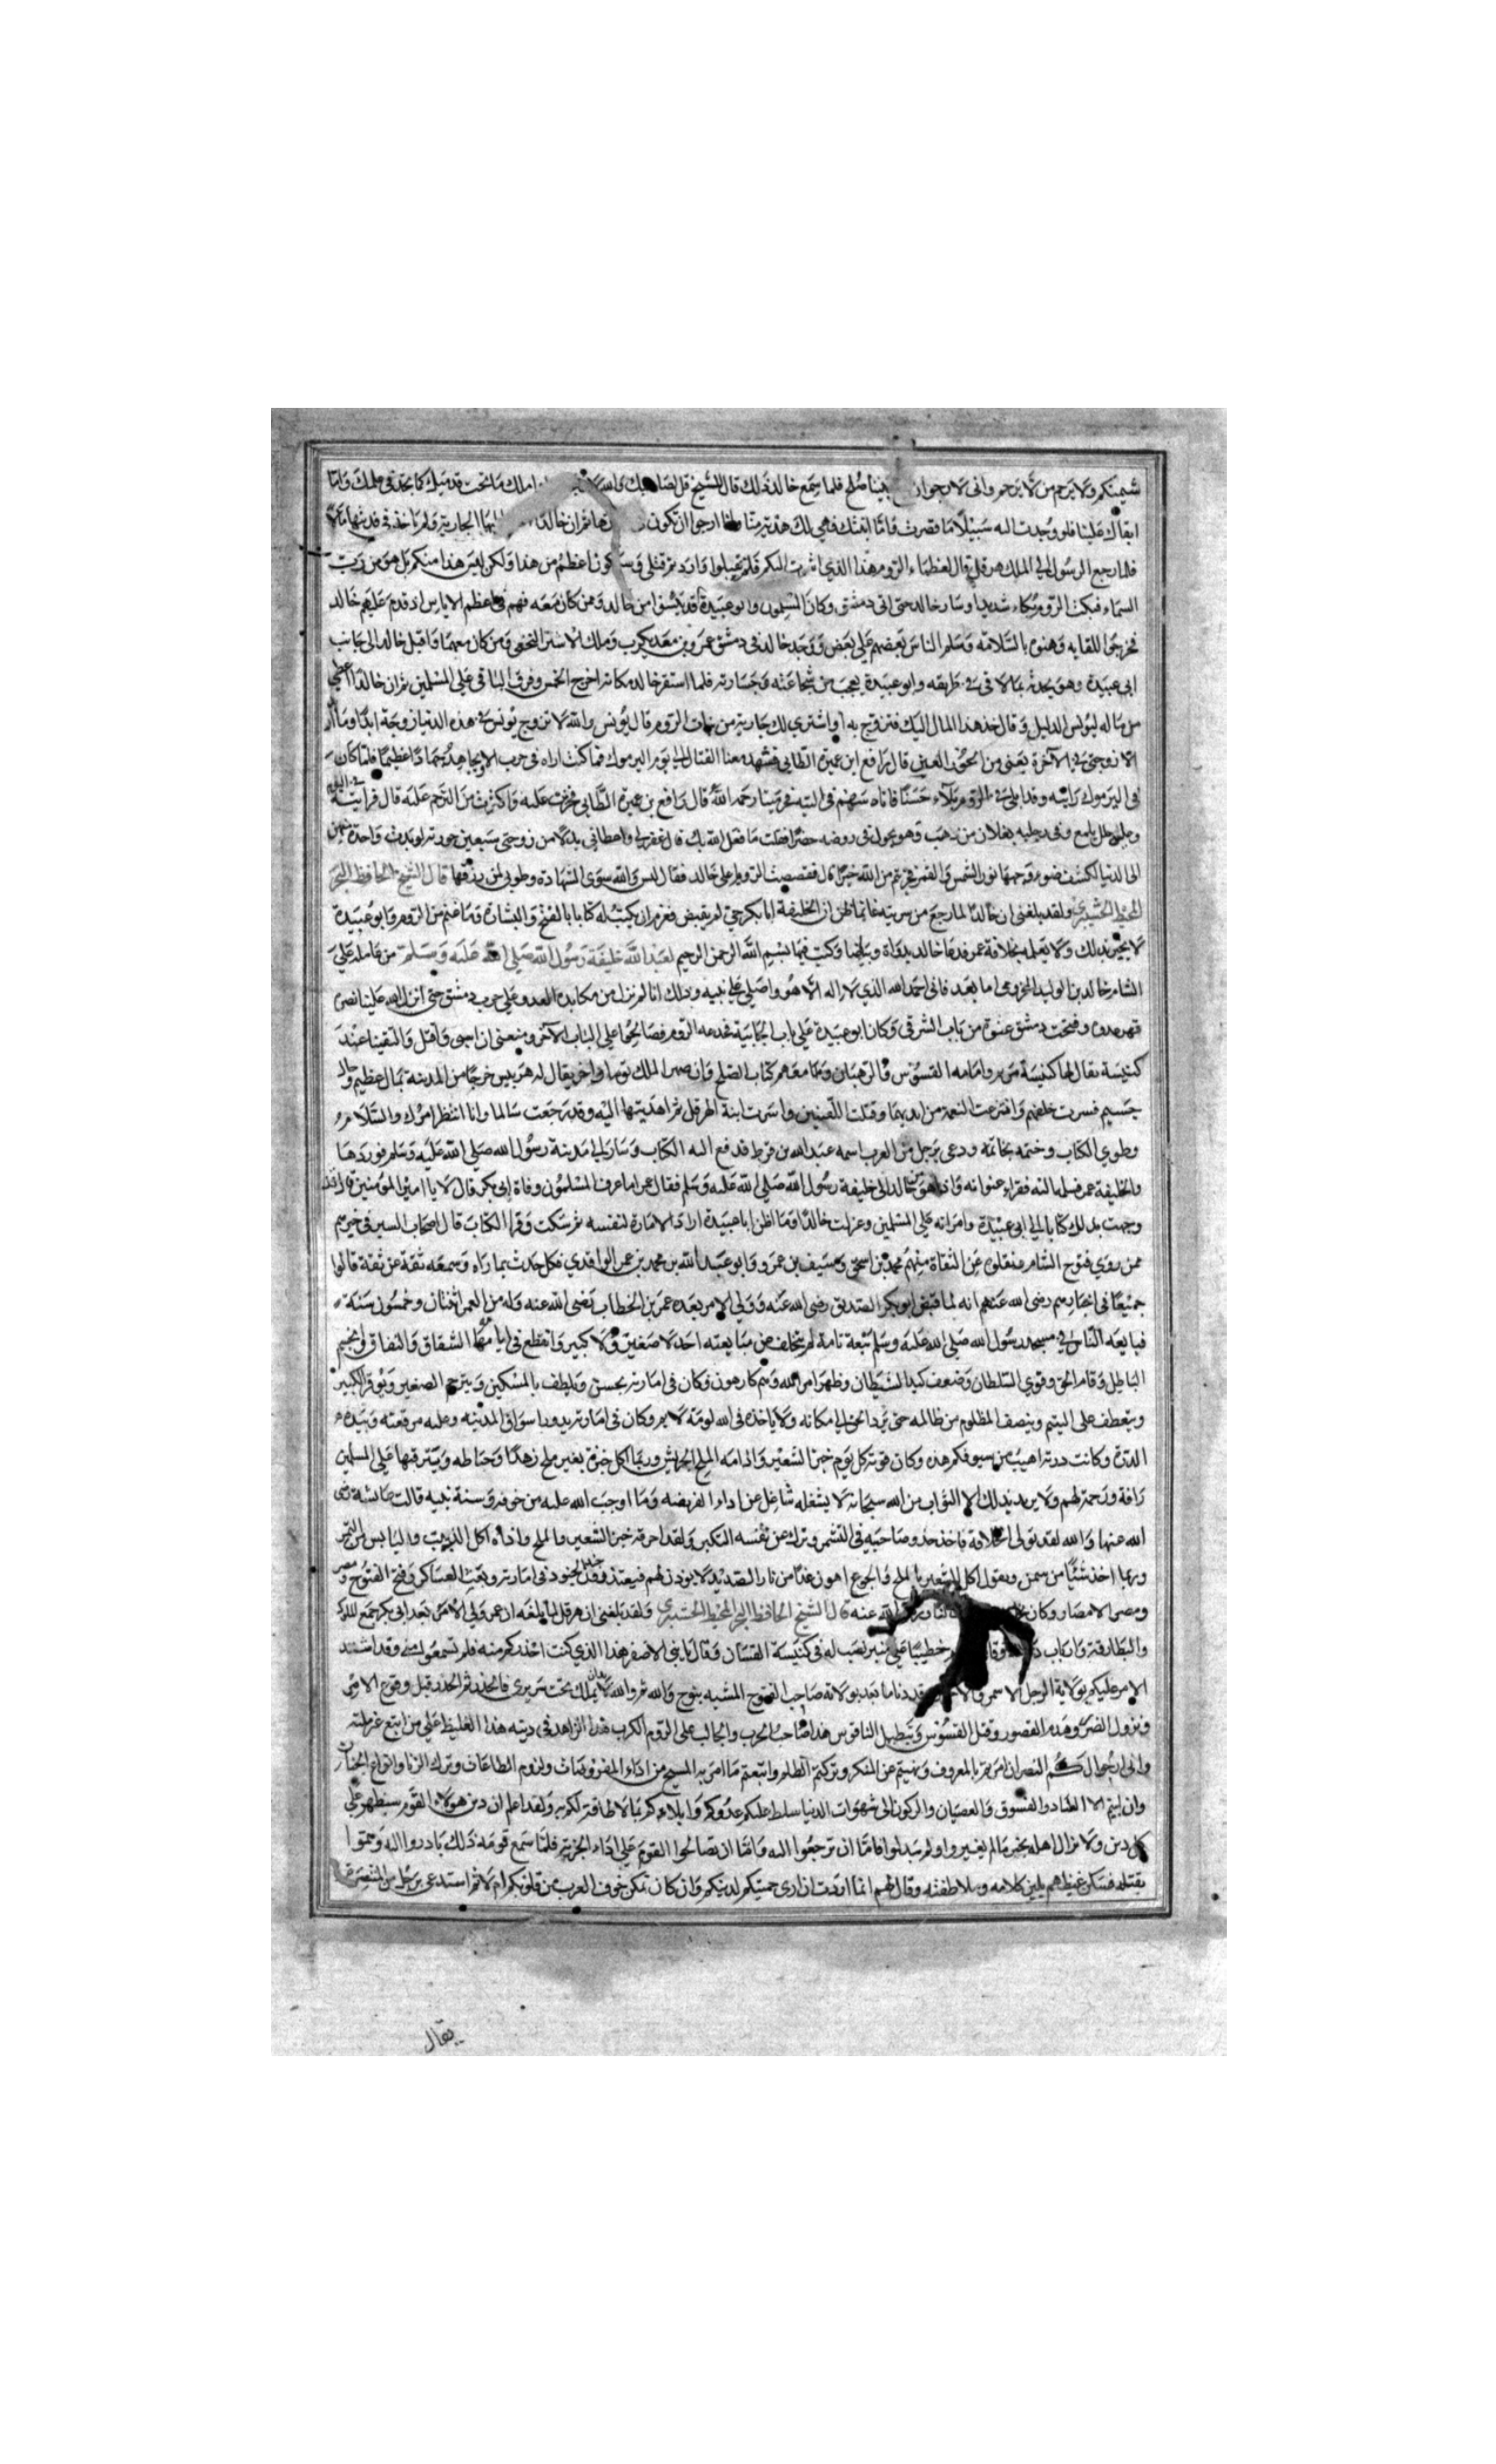 شيمتكم ولا يرحم من لا يرحم واني لارجوا ان بيننا صلح فلما سمع خالد ذلك قال للشيخ قل لصاحبك والله املك ما تحت قدميك كما تحدثني ملك واما
ابقاك علينا فلو وجدت اليه سبيلا ما قصرت فاما ابنتك فهي لك هدية منا ارجوا ان تكون ثم ان خالدا الجارية ولم ياخذ في فديتها مالا
فلما رجع الرسول الى الملك هرقل قال لعظماء الروم هذا الذي اشرت اليكم فلم تقبلوا واردتم قتلي وسيكون اعظم من هذا ولكن ليس هذا منكم بل هو من رب
السماء فبكت الروم بكاء شديدا وسار خالد حتى اتى دمشق وكان المسلمون وابو عبيدة قد يئسوا من خالد ومن كان معه فهم في اعظم الاياس اذ قدم عليهم خالد
فخرجوا للقايه وهنوه بالسلامة وسلم الناس بعضهم على بعض ووجد خالد في دمشق عمرو بن معد يكرب وملك الاشتر النخعي ومن كان معهما واقبل خالد الى جانب
ابي عبيدة وهو يحدثه بما لاقى في طريقه وابو عبيدة يعجب من شجاعته وجسارته فلما استقر خالد مكانه اخرج الخمس وفرق الباقي على المسلمين ثم ان خالدا اعطى
من ماله ليونس الدليل وقال خذ هذا المال اليك فتزوج به او اشتري لك جارية من بنات الروم قال يونس والله لا تزوج يونس في هذه الدنيا زوجة ابدا وما
الا زوجتي في الآخرة يعني من الحور العين قال رافع ابن عميرة الطايي فشهد معنا القتال الى يوم اليرموك فما كنت اراه في حرب الا ويجاهد جهادا عظيما فلما كان
في اليرموك رايته وقد ابلى في الروم بلاء حسنا فاتاه سهم في لبته فخر ميتا رحمه الله قال رافع بن عميرة الطايي فحزنت عليه واكثرت من الترحم عليه قال فرايته في النوم
وعليه حلل تلمع وفي رجليه نعلان من ذهب وهو يجول في روضة خضرا فقلت ما فعل الله بك قال غفر لي واعطاني بدلا من زوجتي سبعين حورية لو بدت واحدة منهن
الى الدنيا لكسف ضوء وجهها نور الشمس والقمر فجزيتم من الله خيرا قال فقصصت الرويا على خالد فقال ليس والله سوى الشهادة وطوبى لمن رزقها قال الشيخ الحافظ البحر
المحيط ولقد بلغني ان خالدا لما رجع من سريته غانما ظن ان الخليفة ابا بكر حي لم يقبض فعزم ان يكتب له كتابا بالفتح والبشارة وما غنم من الروم وابو عبيدة
لا يخبر بذلك ولا يعلمه بخلافة عمر فدعا خالد بدواة وبياض وكتب فيها بسم الله الرحمن الرحيم لعبد الله خليفة رسول الله صلى الله عليه وسلم من عامله على
الشام خالد بن الوليد المخزومي اما بعد فاني احمد الله الذي لا اله الا هو واصلي على نبيه وذلك انا لم نزل من مكابدة العدو على حرب دمشق حتى انزل الله علينا نصره
قهر عدوه وفتحت دمشق عنوة من باب الشرقي وكان ابو عبيدة على باب الجابية فخدعه الروم فصالحوا على الباب الآخر ومنعني ان اسبى واقتل والتقينا عند
كنيسة يقال لها كنيسة مريم وامامه القسوس والرهبان ومعهم كتاب الصلح وان صهر الملك توما واخر يقال له هربيس خرجا من المدينة بمال عظيم
جسيم فسرت خلفهم وانتزعت النعمة من ايديهما وقتلت اللعينين واسرت ابنة الهرقل ثم اهديتها اليه وقد رجعت سالما وانا انتظر امرك والسلام
وطوى الكتاب وختمه بخاتمه ودعى برجل من العرب اسمه عبد الله بن قرط فدفع اليه الكتاب وسار الى مدينة رسول الله صلى الله عليه وسلم فوردها
والخليفة عمر فسلمه اليه فقراء عنوانه واذا هو من خالد الى خليفة رسول الله صلى الله عليه وسلم فقال عمر اما عرف المسلمون وفاة ابي بكر قال لا يا امير المؤمنين قال قد
وجهت بذلك كتابا الى ابي عبيدة وامرته على المسلمين وعزلت خالدا وما اظن ابا عبيدة اراد الامارة لنفسه ثم سكت وقرا الكتاب قال اصحاب السير في خبرهم
ممن روى فتوح الشام منقلوه عن الثقاة منهم محمد بن اسحق وسيف بن عمرو وابو عبد الله بن محمد بن عمر الواقدي فكل حدث بما راه وسمعه ثقة عن ثقة قالوا
جميعا في اخبارهم رضى الله عنهم انه لما قبض ابو بكر الصديق رضى الله عنه وولي الامر بعده عمر بن الخطاب رضى الله عنه وله من العمر اثنان وخمسون سنة
فبايعه الناس في مسجد رسول الله صلى الله عليه وسلم بيعة تامة لم يتخلف عن مبايعته احد لا صغير ولا كبير وانقطع في ايامه الشقاق والنفاق وانحسم
الباطل وقام الحق وقوي السلطان وضعف كيد الشيطان وظهر امر الله وهم كارهون فكان في امارته يحسن ويلطف بالمسكين ويرحم الصغير ويوقر الكبير
ويتعطف على اليتيم وينصف المظلوم من ظالمه حتى يرد الحق الى مكانه ولا ياخذه في الله لومة لايم وكان في امارته يدور باسواق المدينه وعليه مرقعته وبيده
الدرة وكانت درته اهيب من سيوفكم هذه وكان قوته كل يوم خبز الشعير وادامه الملح الجريش وربما اكل خبزه بغير ملح زهدا وحياطه وترفها على المسلمين
رافة ورحمة لهم ولا يريد بذلك الا الثواب من الله سبحانه لا يشغله شاغل عن اداء الفريضه وما اوجب الله عليه من خوفه وسنة نبيه قالت عايشة رضى
الله عنها والله لقد تولى الخلافة فاخذ حذو صاحبيه في التشمر وترك عن نفسه التكبر ولقد احرقه خبز الشعير والملح واذاه اكل الزيت واليابس من التمر
وربما اخذ شيئا من سمن ويقول اكل الشعير بالملح والجوع اهون غدا من نار الصديد لا يودن لهم فيعتذرون جند الجنود في امارته وبعث العساكر وفتح الفتوح
ومصر الامصار وكان النار رضى الله عنه قال الشيخ الحافظ البحر المحيط ولقد بلغني ان هرقل لما بلغه ان عمر ولي الامر بعد ابي بكر جمع الملوك
والبطارقة وارباب وقام خطيبا على منبر نصب له في كنيسة القسان وقال يا بني الاصفر هذا الذي كنت احذركم منه فلم تسمعوا مني وقد اشتد
الامر عليكم بولاية الرجل الاسمر وقد دنا ما بعد بولاته صاحب الفتوح المشبه بنوح والله ثم والله لا بد ان يملك تحت سريري فالحذر ثم الحذر قبل وقوع الامر
ونزول الضر وهدم القصور وقتل القسوس وتبطيل الناقوس هذا صاحب الحرب والجالب على الروم الكرب هذا الزاهد في دينه هذا الغليظ على من اتبع غير ملته
واني ارجوا لكم النصر ان امرتم بالمعروف ونهيتم عن المنكر وتركتم الظلم واتبعتم ما امر به المسيح من اداء المفروضات ولزوم الطاعات وترك الزنا وانواع
وان ابيتم الا الفساد والفسوق والعصيان والركون الى شهوات الدنيا سلط عليكم عدوكم وابلاكم بما لا طاقة لكم به ولقد اعلم ان دين هولاء القوم سيظهر على
كل دين ولا يزال اهله بخير ما لم يغيروا ولم يبدلوا فاما ان ترجعوا اليه واما ان تصالحوا القوم على اداء الجزية فلما سمع قومه ذلك بادروا اليه وهموا
بقتله فسكن غيظهم بلين كلامه وملاطفته وقال لهم انما اردت ان ارى حميتكم لدينكم وان كان تمكن خوف العرب من قلوبكم ام لا ثم استدعى برجل من المتنصرة
يقال